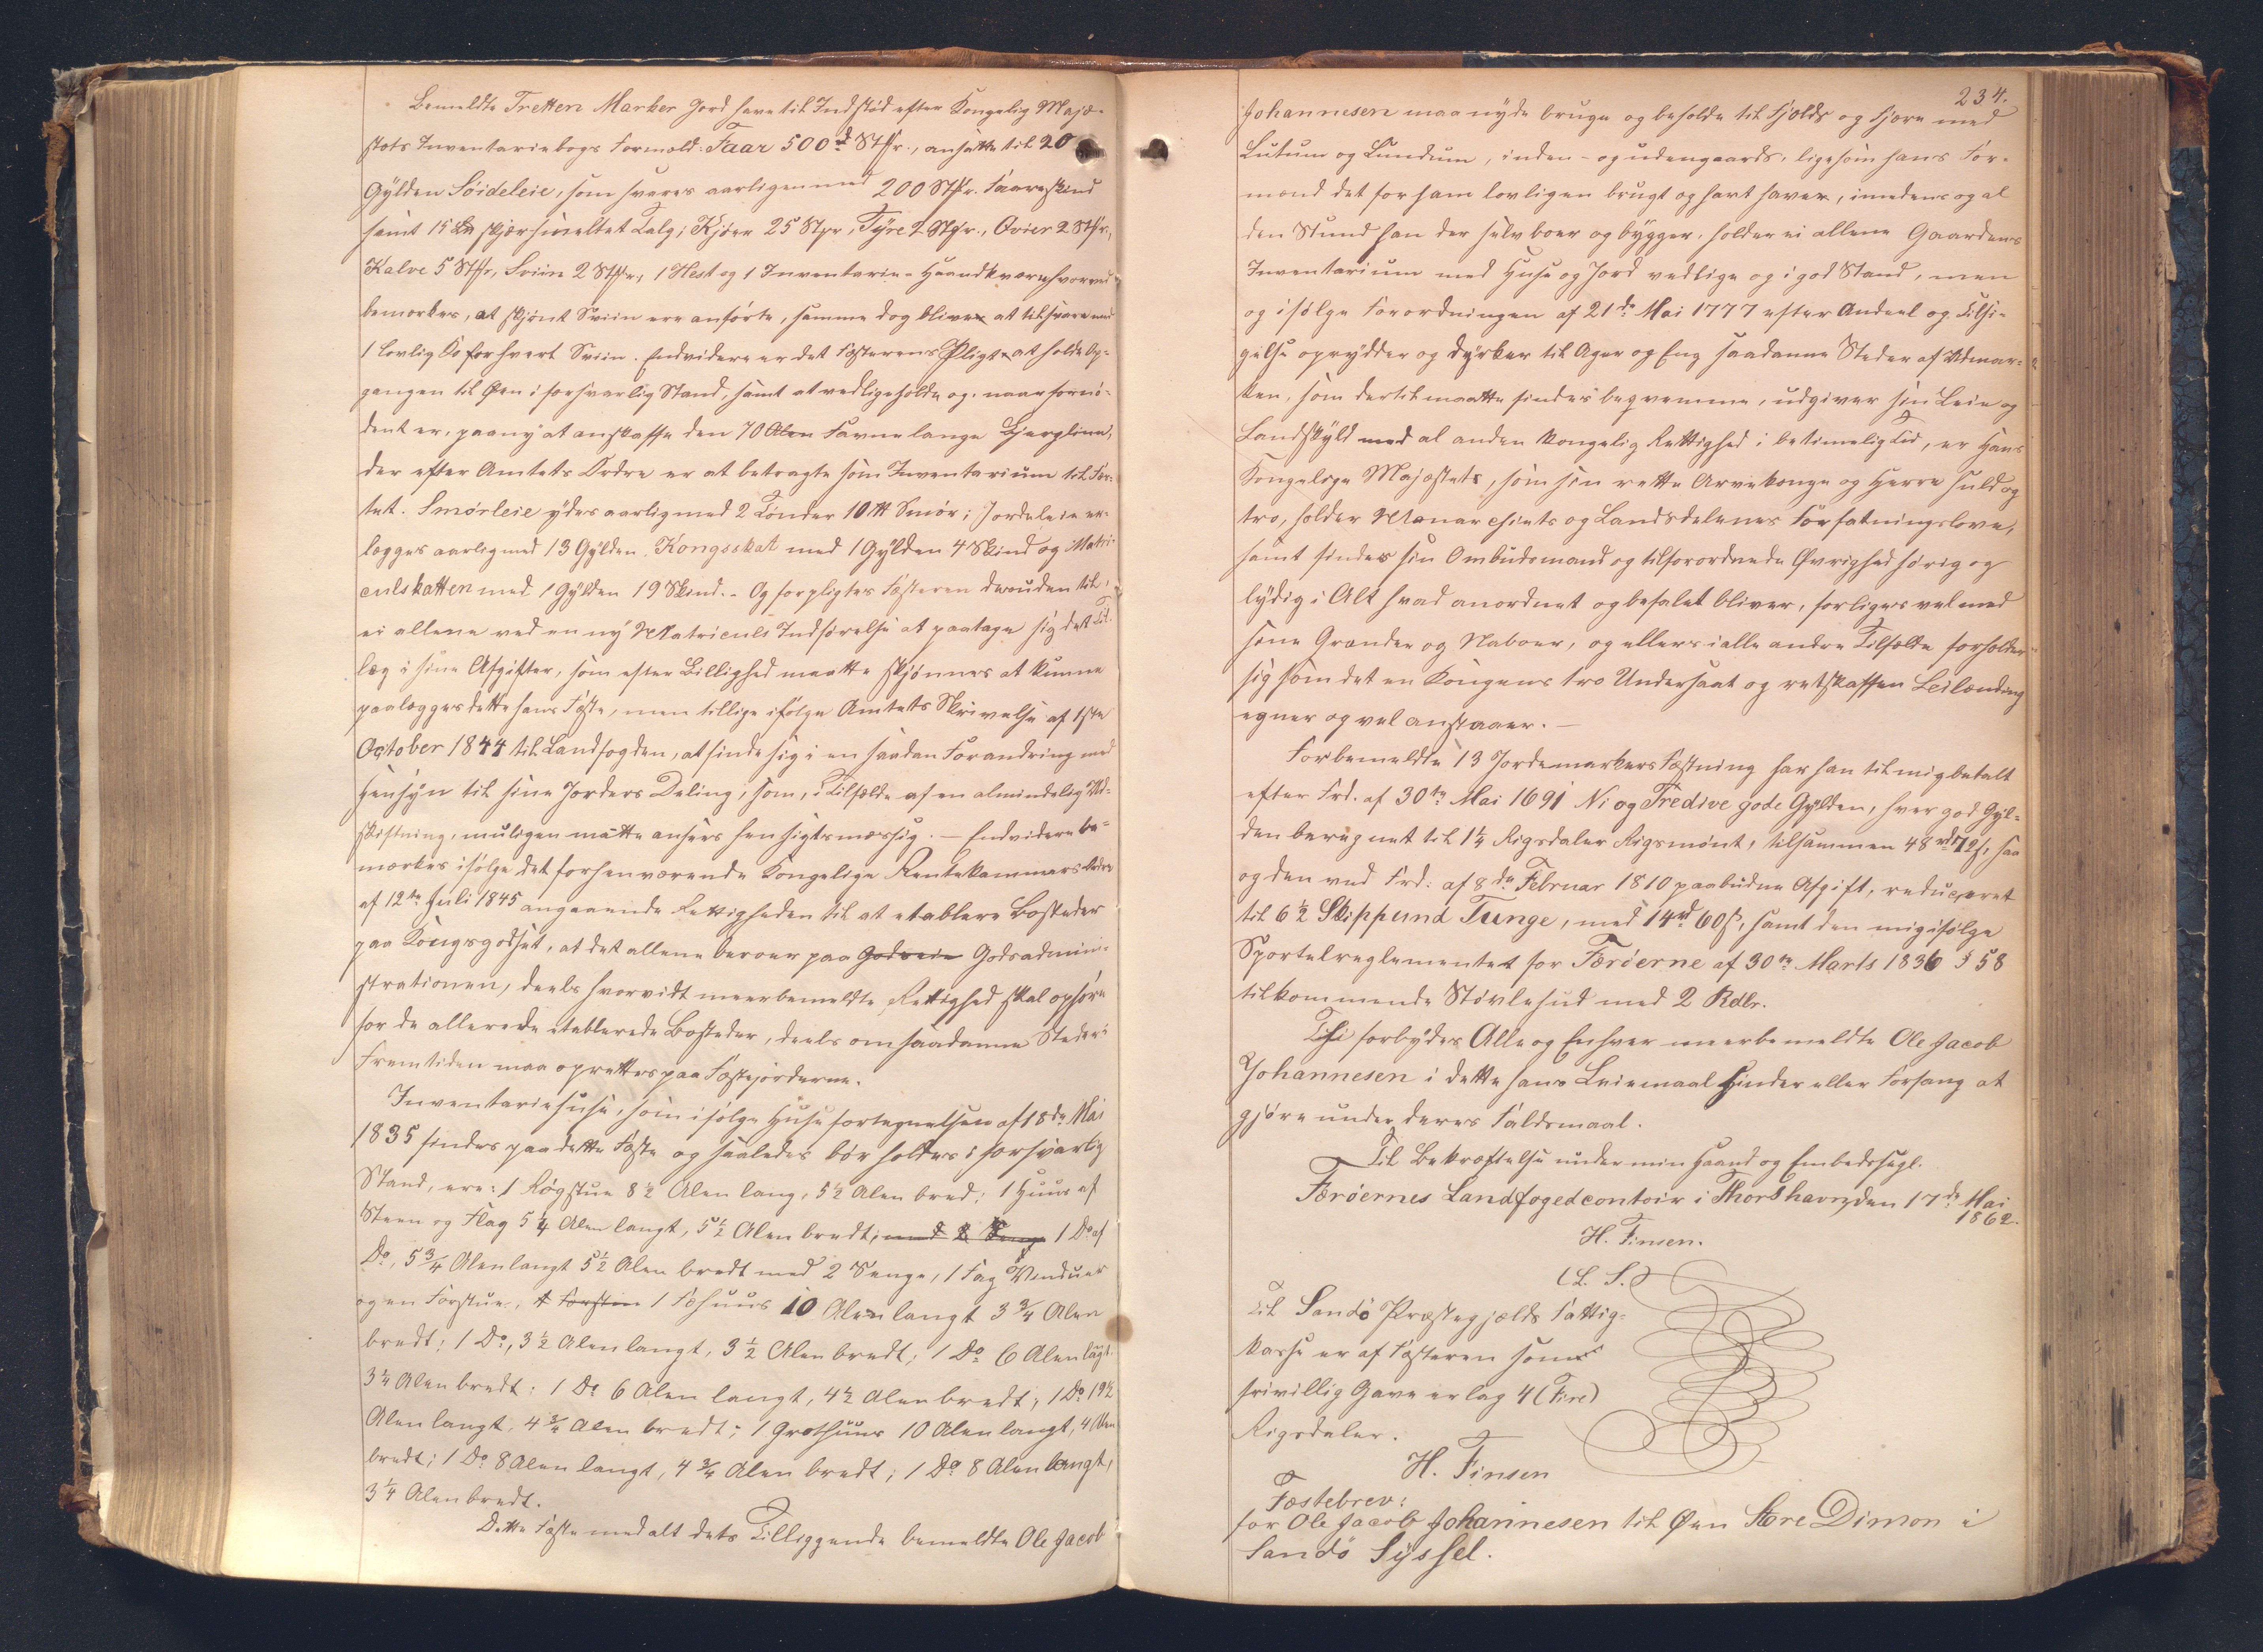 Bemeldte Tretten Marker Jord have til Indstød efter Kongelig Maje-
stæts Inventariebogs Formeld: Faar 500 d Stkr., ansatte til 20
Gylden Søideleie, som svares aarligen med 200 Stkr. Faareskind
samt 15 skjørsmeltet Talg; Kjøer 25 Stkr, Tyre 2 Stkr., Qvier 2 Stkr,
Kalve 5 Stkr, Sviin 2 Stkr, 1 Hest og 1 Inventarie-Haandkværn hvorved
bemærkes, at skjønt Sviin ere anførte, samme dog bliver at tilsvare med
1 lovlig Ko for hvert Sviin. Endvidere er det Fæsterens Pligt at holde Op-
gangen til Øen i forsvarlig Stand, samt at vedligeholde og, naar fornø-
dent er, paany at anskaffe den 70 Alen Favne lange Bjergline,
der efter Amtets Ordre er at betragte som Inventarium til Fæ-
stet. Smørleie ydes aarlig med 2 Tønder 10 ℔ Smør; Jordeleie er-
lægges aarlig med 13 Gylden. Kongsskat med 1 Gylden 4 Skind og Matri-
culskatten med 1 Gylden 19 Skind. - Og forpligtes Fæsteren desuden til,
ei allene ved en ny Matriculs Indførelse at paatage sig det Til-
læg i sine Afgifter, som efter Billighed maatte skjønnes at kunne
paalægges dette hans Fæste, men tillige ifølge Amtets Skrivelse af 1ste
October 1844 til Landfogden, at finde sig i en saadan Forandring med
Hensyn til sine Jorders Deling, som, i Tilfælde af en almindelig Ud-
skiftning, muligen måtte ansees hensigtsmæssig. - Endvidere be-
mærkes ifølge det forhenværende Kongelige Rentekammers Ordre
af 12te Juli 1845 angaaende Rettigheden til at etablere Bosteder
paa Kongsgodset, at det allene beroer paa Godseie Godsadmini-
strationen, deels hvorvidt meerbemeldte Rettighed skal ophøre
for de allerede etablerede Bosteder, deels om saadanne Steder i
Fremtiden maa oprettes paa Fæstejorderne.
Inventariehuse, som ifølge Husefortegnelsen af 18de Mai
1835 findes paa dette Fæste og saaledes bør holdes i forsvarlig
Stand, ere: 1 Røgstue 8½ Alen lang, 5½ Alen bred; 1 Huus af
Steen og Flag 5¼ Alen langt, 5½ Alen bredt; med 2 Senge 1 Do af
Do, 5¾ Alen langt 5½ Alen bredt med 2 Senge, 1 Fag Vinduer
og en Forstue, 1 Forstue 1 Fæhuus 10 Alen langt 3¾ Alen
bredt; 1 Do, 3½ Alen langt, 3½ Alen bredt; 1 Do 6 Alen lagt
3¼ Alen bredt: 1 Do 6 Alen langt, 4½ Alen bredt; 1 Do 19½
Alen langt, 4¾ Alen bredt; 1 Grothuus 10 Alen langt, 4 Alen
bredt; 1 Do 8 Alen langt, 4¾ Alen bredt; 1 Do 8 Alen langt,
3¼ Alen bredt.
Dette Fæste med alt dets Tilliggende bemeldte Ole Jacob
234.
Johannesen maa nyde bruge og beholde til Fjelds og Fjære med
Lutum og Lundum, inden- og udengaards, ligesom hans For-
mænd det for ham lovligen brugt og havt haver, imedens og al
den Stund han der selv boer og bygger, holder ei allene Gaardens
Inventarium med Huse og Jord vedlige og i god Stand, men
og ifølge Forordningen af 21de Mai 1777 efter Andeel og Tilsi-
gelse oprydder og dyrker til Ager og Eng saadanne Steder af Udmar-
ken, som dertil maatte findes beqvemme, udgiver sin Leie og
Landskyld med al anden Kongelig Rettighed i betimelig Tid, er Hans
Kongelige Majestæt, som sin rette Arvekonge og Herre huld og
tro, holder Monarchiets og Landsdelenes Forfatningslove,
samt findes sin Ombudsmand og tilforordnede Øvrighed hørig og
lydig i Alt hvad anordnet og befalet bliver, forliges vel med
sine Grander og Naboer, og ellers i alle andre Tilfælde forholder
sig som det en Kongens tro Undersaat og retskaffen Leilænding
egner og vel anstaaer. -
Forbemeldte 13 Jordemarkers Fæstning har han til mig betalt
efter Frd. af 30te Mai 1691 Ni og Tredive gode Gylden, hver god Gyl-
den beregnet til 1¼ Rigsdaler Rigsmønt, tilsammen 48 rd 72 ß, saa
og den ved Frd. af 8de Februar 1810 paabudne Afgift, reduceret
til 6½ Skippund Tunge, med 14 rd 60 ß, samt den mig ifølge
Sportelreglementet for Færøerne af 30te Marts 1836 § 58
tilkommende Støvlehud med 2 Rdlr.
Thi forbydes Alle og Enhver meerbemeldte Ole Jacob
Johannesen i dette hans Leiemaal Hinder eller Forfang at
gjøre under deres Faldsmaal.
Til Bekræftelse under min Haand og Embedssegl.
Færøernes Landfogedcontoir i Thorshavn, den 17de Mai
1862.
H. Finsen.
(L. S.)
Til Sandø Præstegjælds Fattig-
kasse er af Fæsteren som
frivillig Gave erlagt 4 (Fire)
Rigsdaler.
H. Finsen
Fæstebrev:
for Ole Jacob Johannesen til Øen Store Dimon i
Sandø Syssel.